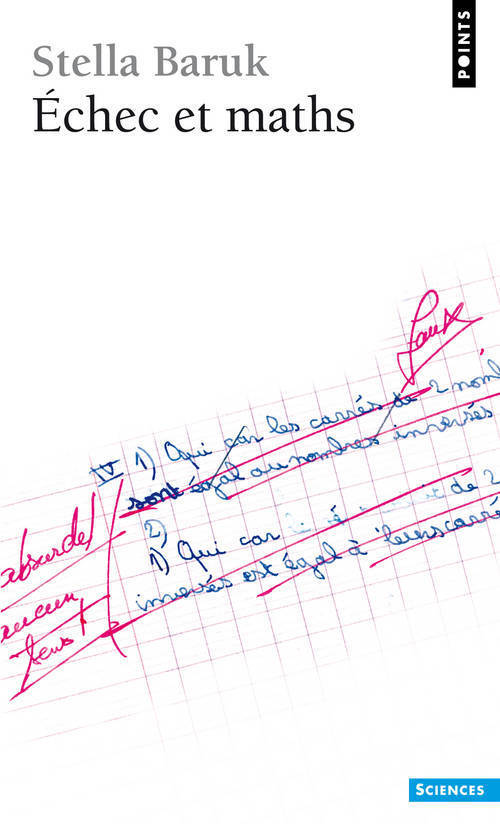 POINTS
Stella Baruk
Échec et maths
Faux
IV 1) Oui car les carrés de 2 nom
sont égal au nombres inversés
2)
1) Oui car de 2
inversés est égal à leurs carré
absurde!
aucun
sens!
SCIENCES